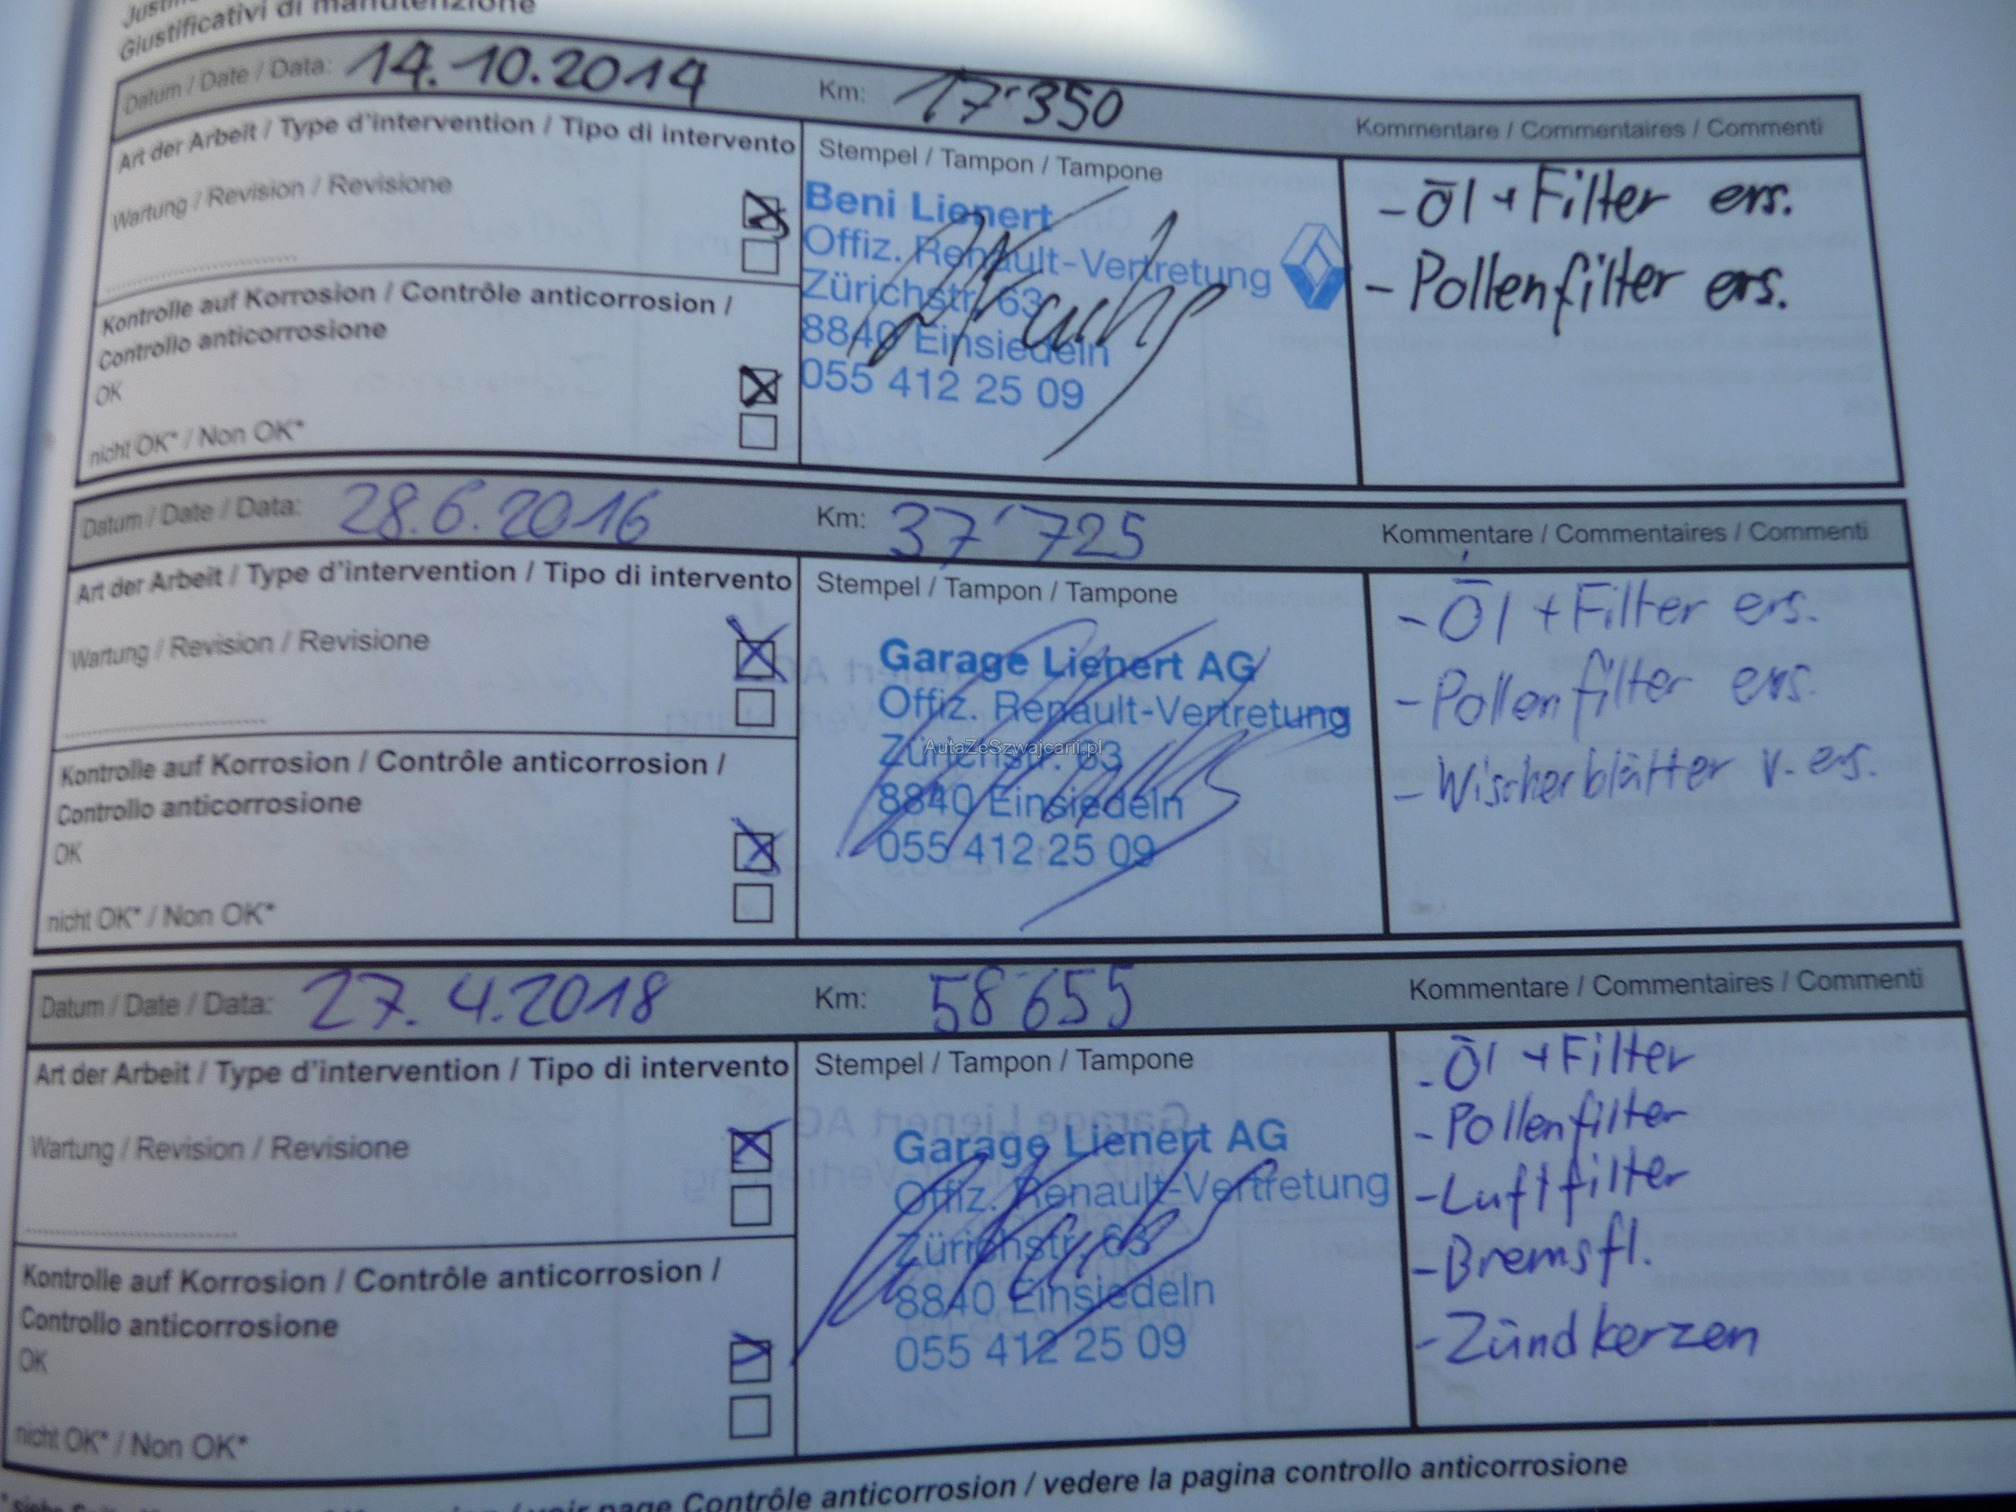 Giustificativi di manutenzione
Datum / Date / Data: 14.10.2014 Km: 17'350 Kommentare / Commentaires / Commenti
Art der Arbeit / Type d'intervention / Tipo di intervento
Stempel / Tampon / Tampone
Wartung / Revision / Revisione
Beni Lienert
Offiz. Renault-Vertretung
Zürichstr. 63
8840 Einsiedeln
055 412 25 09
- Öl + Filter ers.
- Pollenfilter ers.
Kontrolle auf Korrosion / Contrôle anticorrosion /
Controllo anticorrosione
OK
nicht OK* / Non OK*
Datum / Date / Data: 28.6.2016 Km: 37'725 Kommentare / Commentaires / Commenti
Art der Arbeit / Type d'intervention / Tipo di intervento
Stempel / Tampon / Tampone
Wartung / Revision / Revisione
Garage Lienert AG
Offiz. Renault-Vertretung
Zürichstr. 63
8840 Einsiedeln
055 412 25 09
- Öl + Filter ers.
- Pollenfilter ers.
- Wischerblätter v. ers.
AutaZeSzwajcarii.pl
Kontrolle auf Korrosion / Contrôle anticorrosion /
Controllo anticorrosione
OK
nicht OK* / Non OK*
Datum / Date / Data: 27.4.2018 Km: 58'655 Kommentare / Commentaires / Commenti
Art der Arbeit / Type d'intervention / Tipo di intervento
Stempel / Tampon / Tampone
Wartung / Revision / Revisione
Garage Lienert AG
Offiz. Renault-Vertretung
Zürichstr. 63
8840 Einsiedeln
055 412 25 09
- Öl + Filter
- Pollenfilter
- Luftfilter
- Bremsfl.
- Zündkerzen
Kontrolle auf Korrosion / Contrôle anticorrosion /
Controllo anticorrosione
OK
nicht OK* / Non OK*
/ voir page Contrôle anticorrosion / vedere la pagina controllo anticorrosione